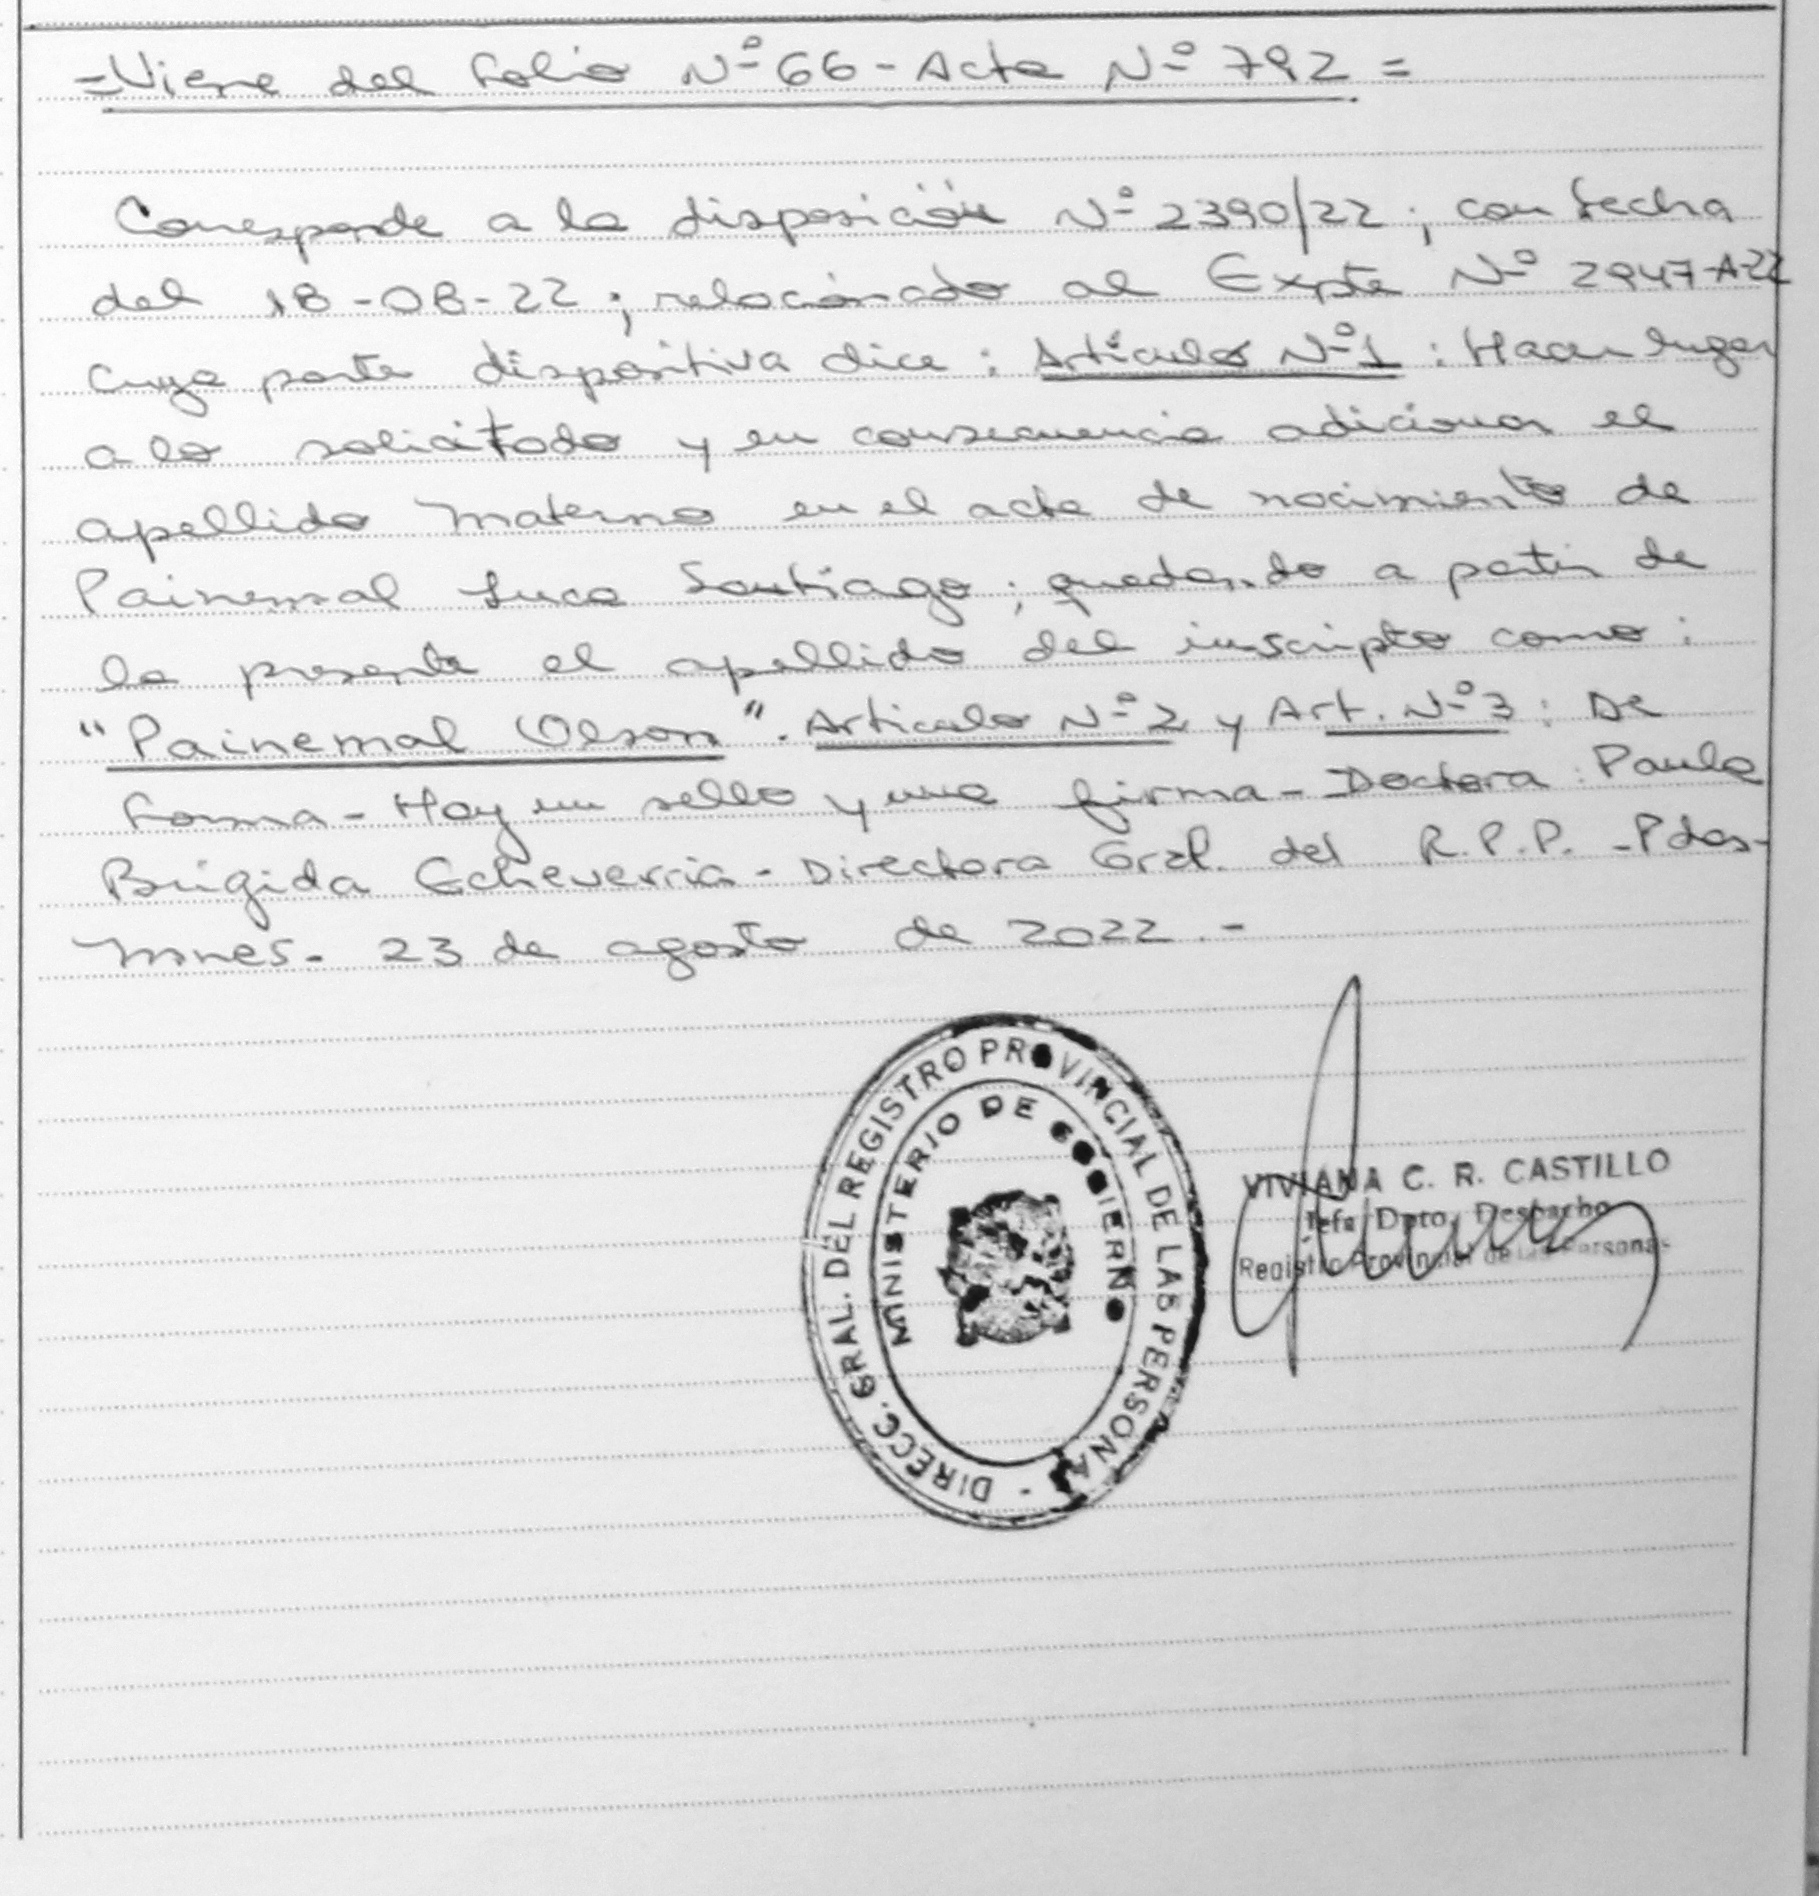 =Viene del Folio Nº 66 - Acta Nº 792=
Corresponde a la disposición Nº 2390/22; con fecha
del 18-08-22; relacionado al Expte Nº 2947-A-22
Cuya parte dispositiva dice: Artículo Nº1: Hacer lugar
a lo solicitado y en consecuencia adicionar el
apellido Materno en el acta de nacimiento de
Painemal Luca Santiago; quedando a partir de
la presente el apellido del inscripto como:
"Painemal Olson". Articulo Nº2 y Art. Nº3: De
Forma - Hay un sello y una firma - Doctora: Paula
Brigida Echeverria - Directora Gral. del R.P.P. - Pdas-
Mnes. 23 de agosto de 2022.-
DIRECC. GRAL. DEL REGISTRO PROVINCIAL DE LAS PERSONAS -
MINISTERIO DE GOBIERNO
VIVIANA C. R. CASTILLO
Jefa Dpto. Despacho
Registro Provincial de las Personas